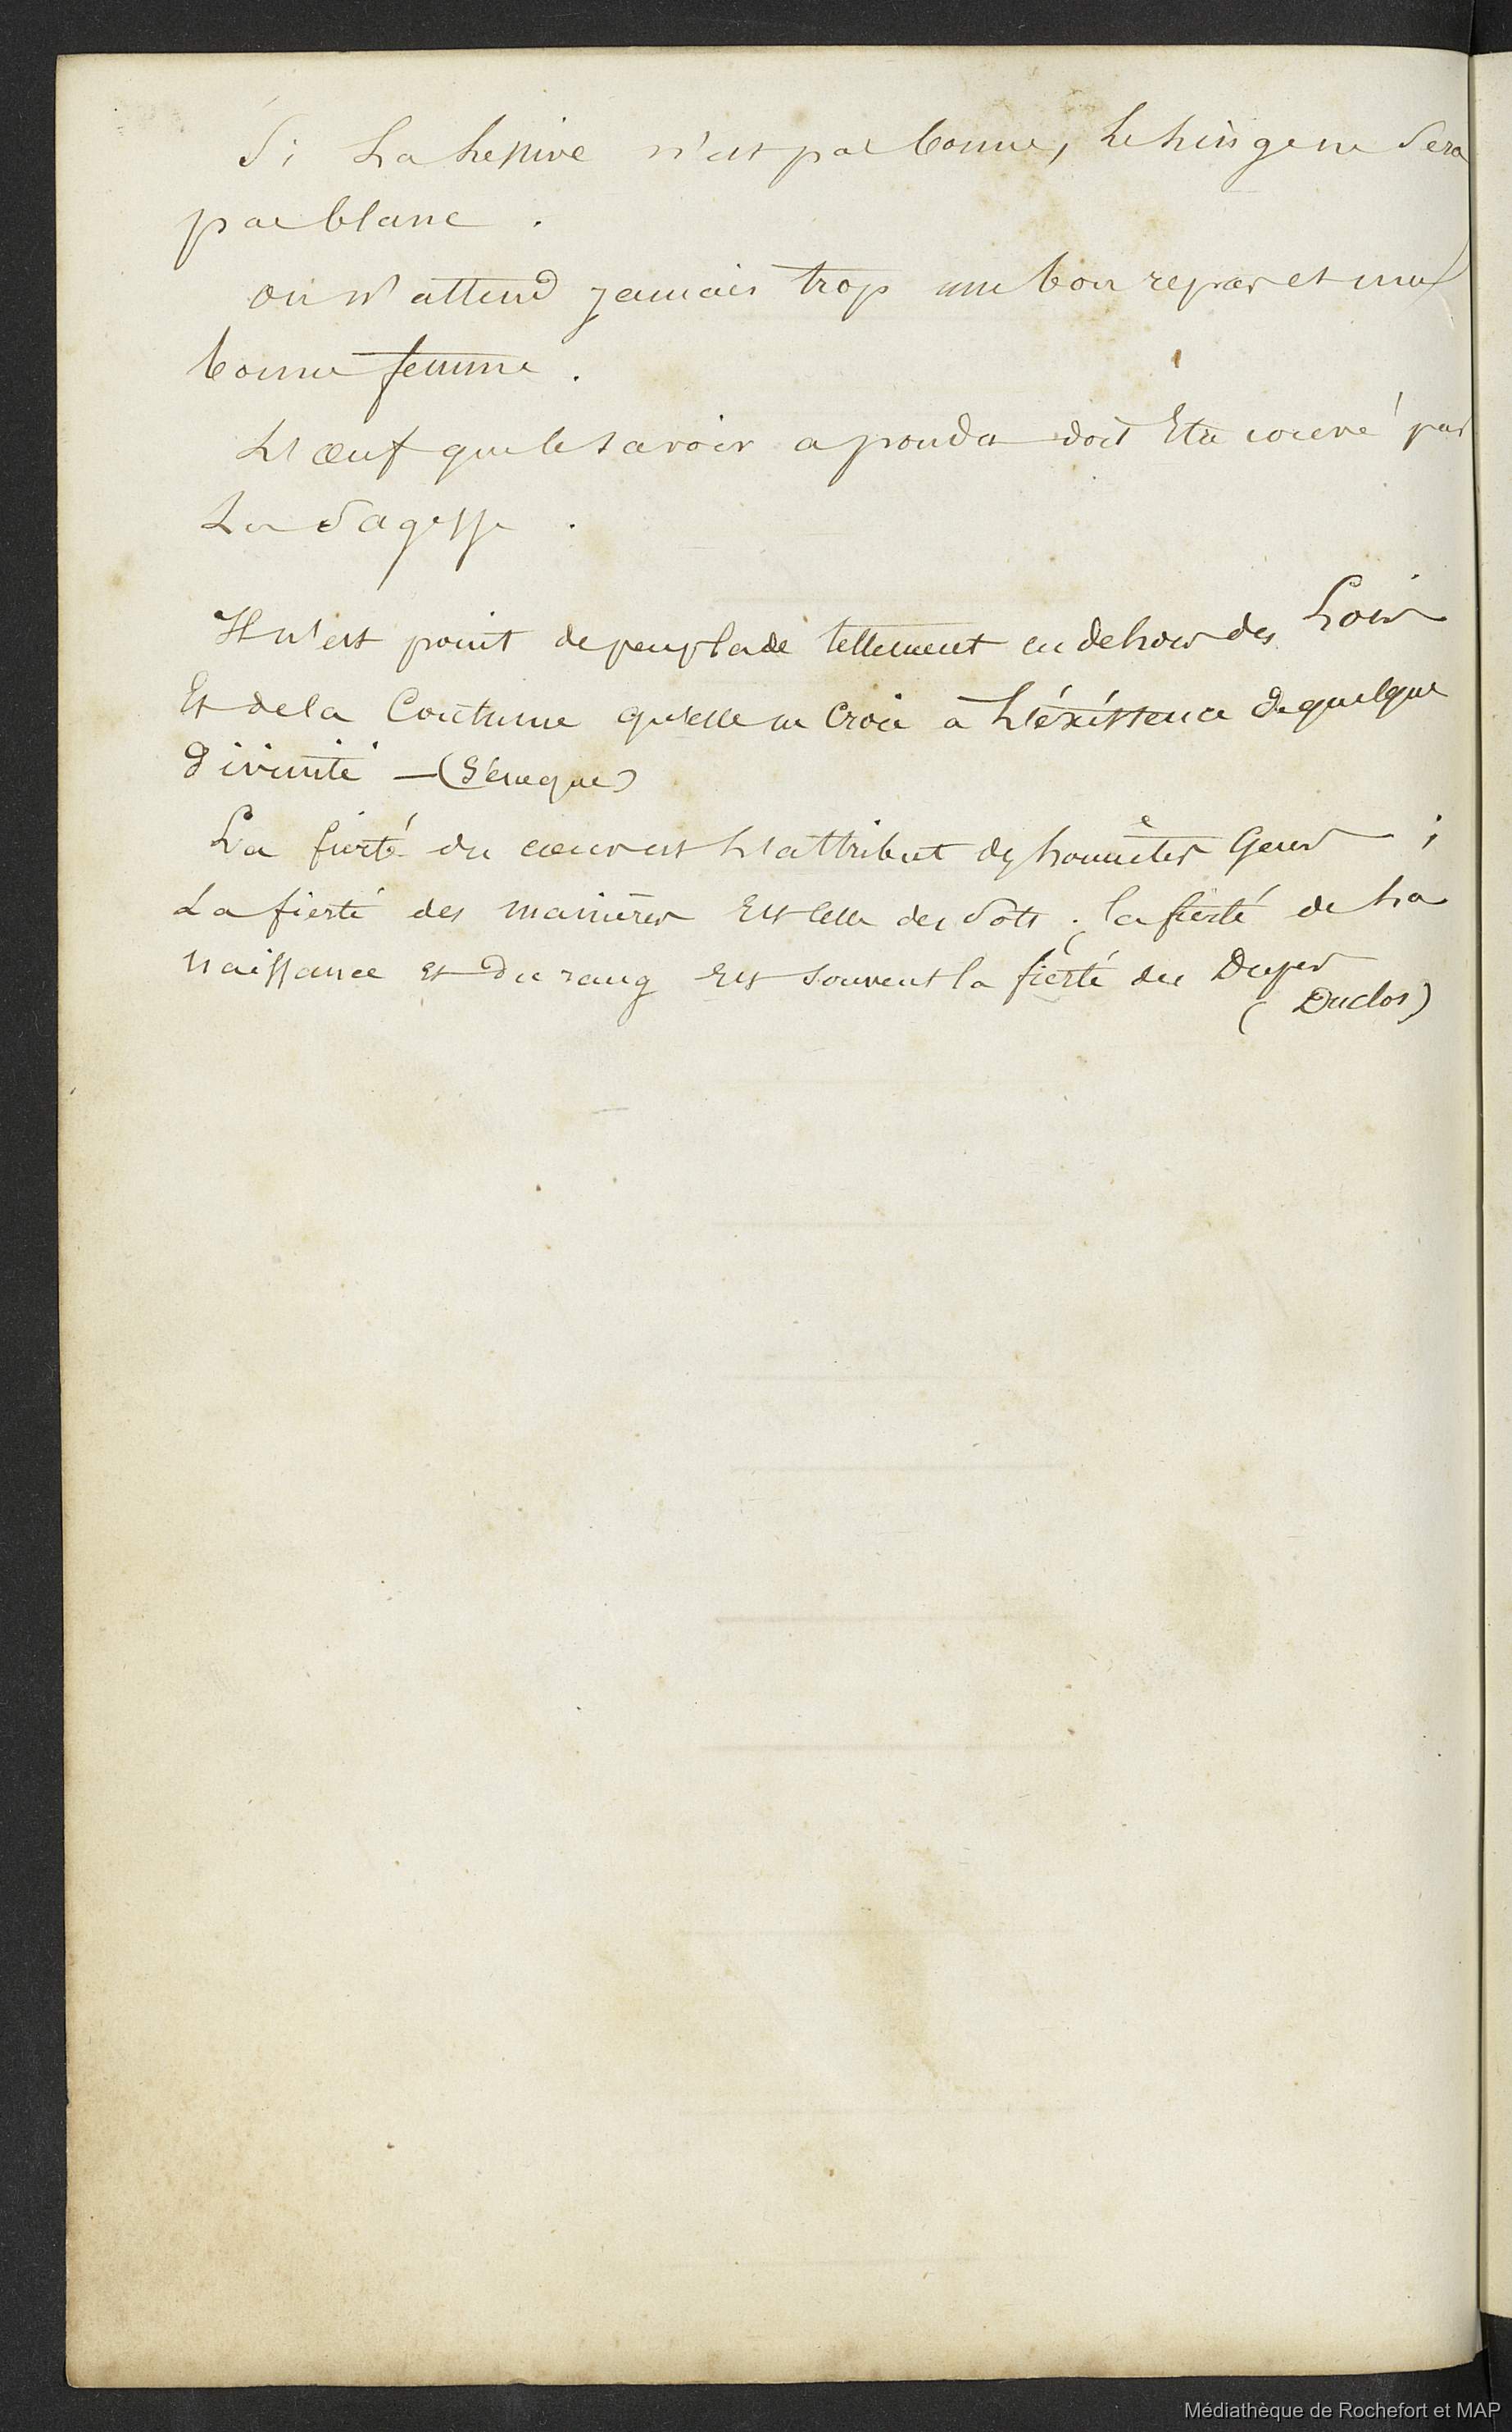 Si La Lessive n'est pas bonne, Le Linge ne Sera
pas blanc .
on n'attend jamais trop un bon repas et une
bonne femme .
L'œuf que le savoir a pondu doit Etre couvé par
La Sagesse .
Il n'est point de peuplade tellement en dehors des Lois
Et de la Coutume qu'elle ne croie à L'éxistence de quelque
divinité — (Sénèque)
La fierté du cœur est L'attribut des honnêtes Gens ;
La fierté des manières Est celle des Sots ; la fierté de La
naissance et du rang Est souvent la fierté des Dupes
(Duclos)
Médiathèque de Rochefort et MAP